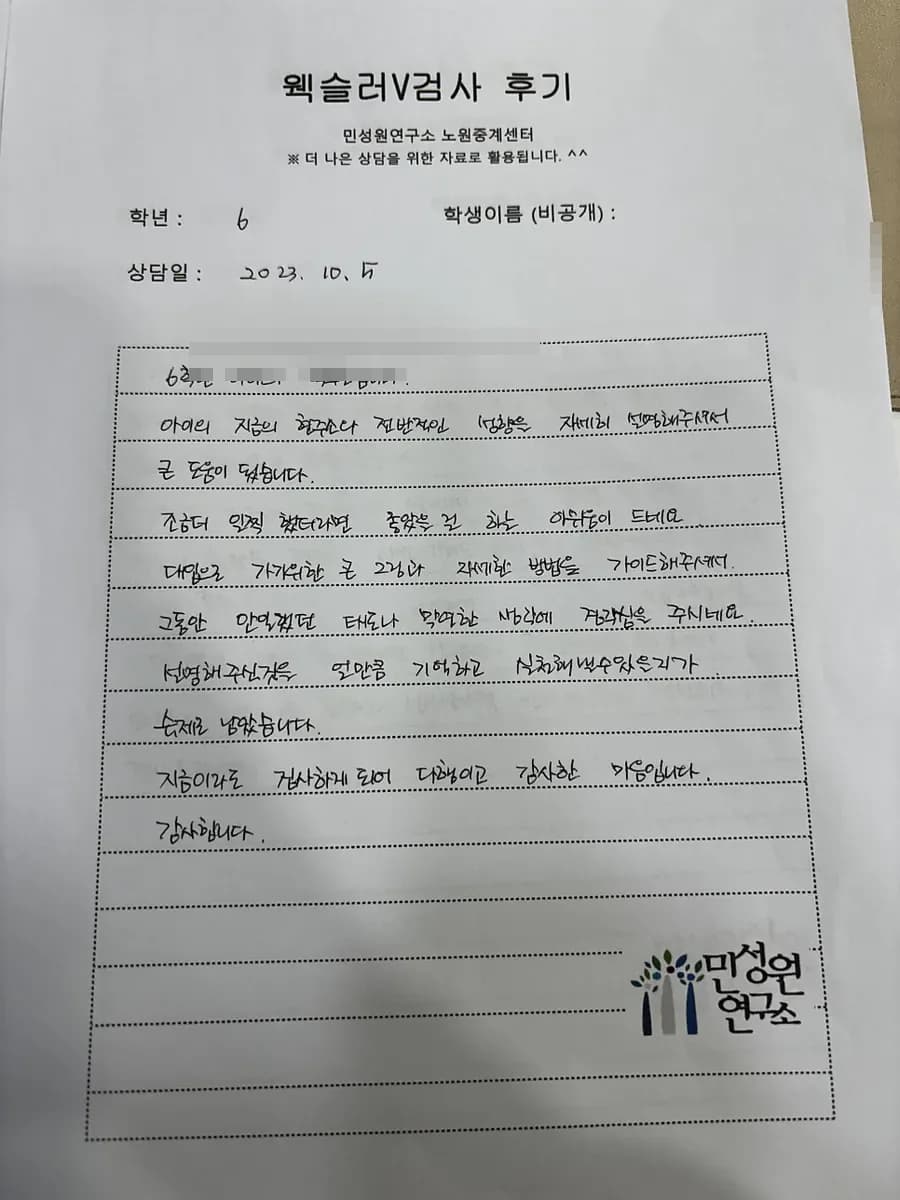 웩슬러V검사 후기
민성원연구소 노원중계센터
※ 더 나은 상담을 위한 자료로 활용됩니다. ^^
학년 : 6 학생이름 (비공개) :
상담일 : 2023. 10. 5
아이의 지금의 현주소나 전반적인 성향을 자세히 설명해주셔서
큰 도움이 됬습니다.
조금더 일찍 했더라면 좋았을 걸 하는 아쉬움이 드네요
대입으로 가기위한 큰 그림과 자세한 방법을 가이드해주셔서.
그동안 안일했던 태도나 막연한 생각에 경각심을 주시네요.
설명해주신것을 얼만큼 기억하고 실천해낼수있을지가
숙제로 남았습니다.
지금이라도 검사하게 되어 다행이고 감사한 마음입니다.
감사합니다.
민성원
연구소